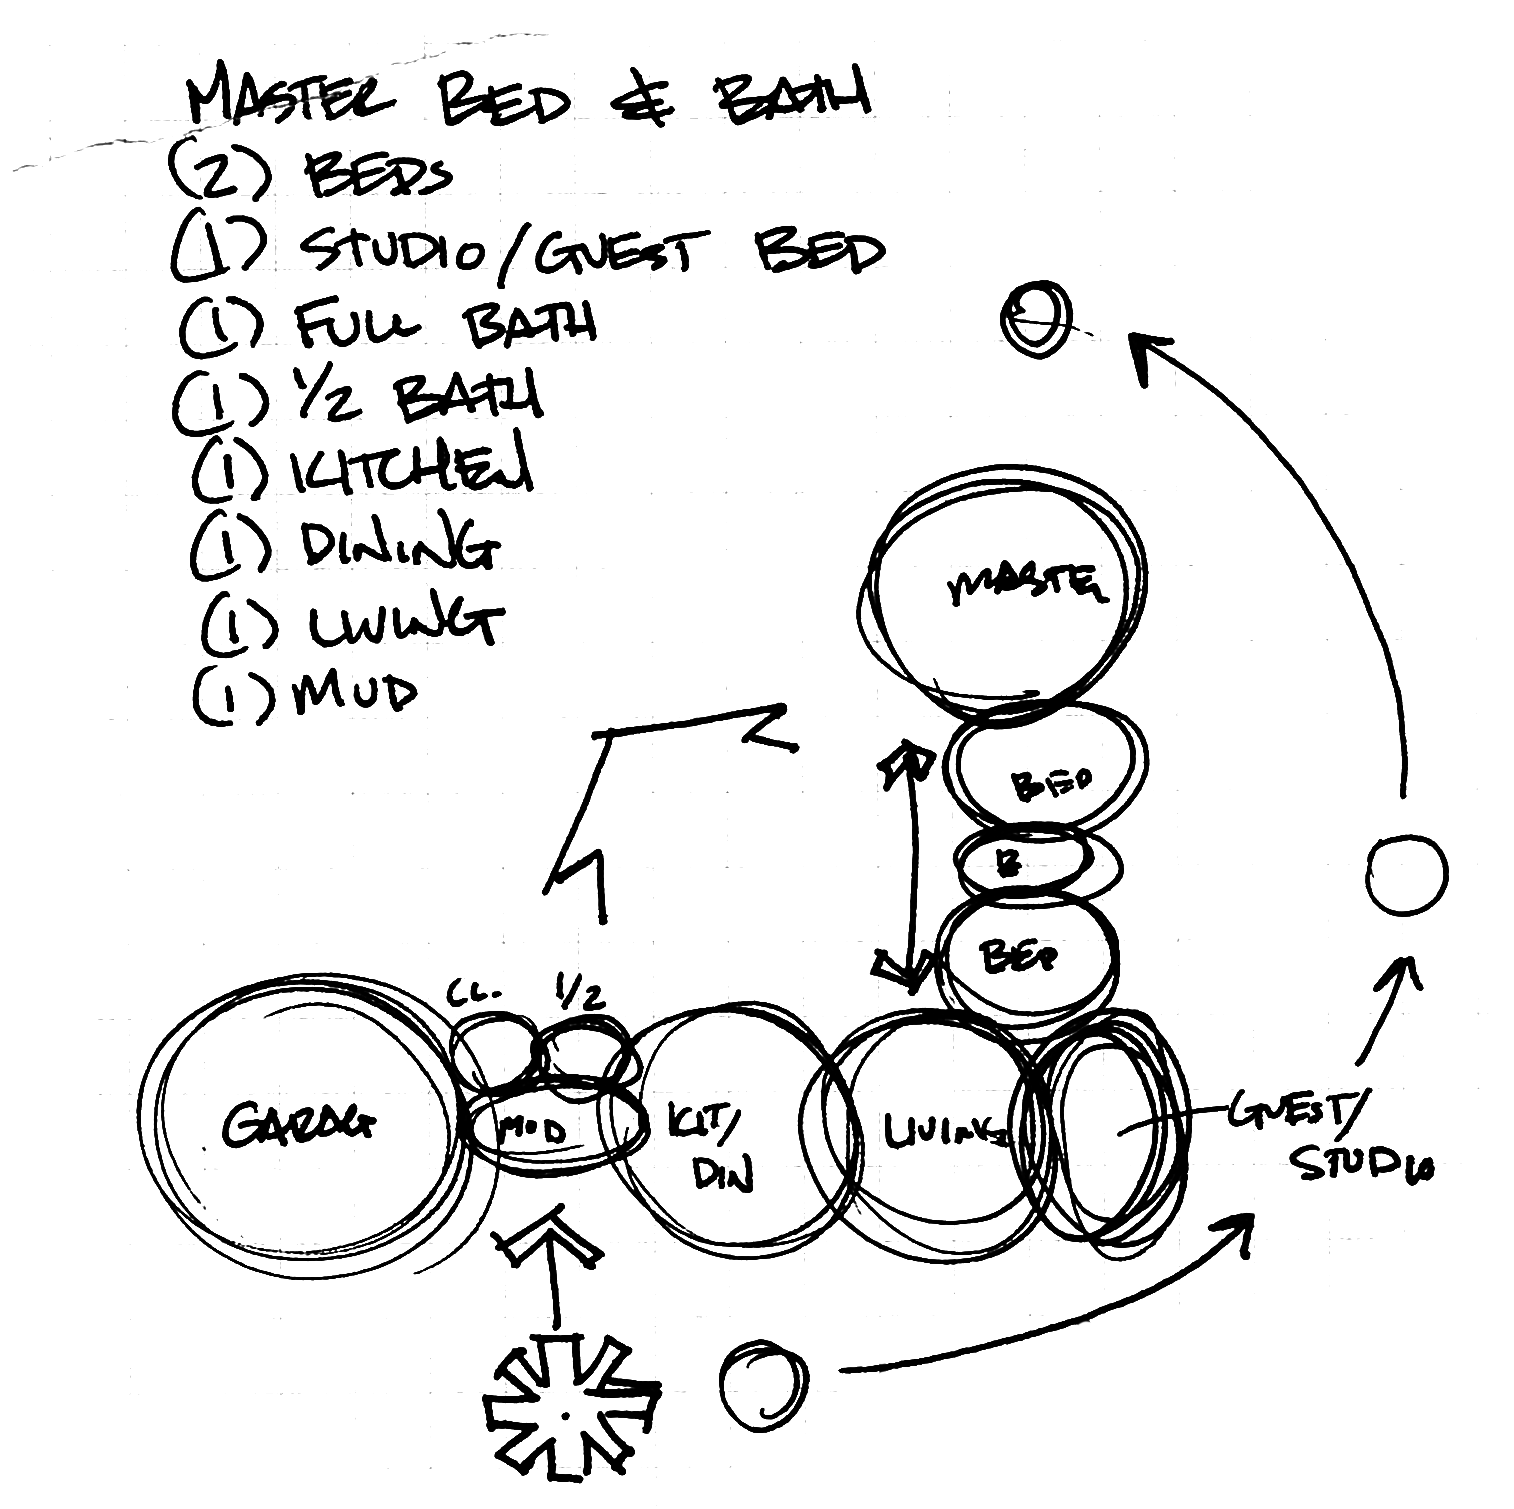 MASTER BED & BATH
(2) BEDS
(1) STUDIO/GUEST BED
(1) FULL BATH
(1) 1/2 BATH
(1) KITCHEN
(1) DINING
(1) LIVING
(1) MUD
MASTER
BED
B
BED
CL.
1/2
GARAG
MUD
KIT/
DIN
LIVING
GUEST/
STUDIO